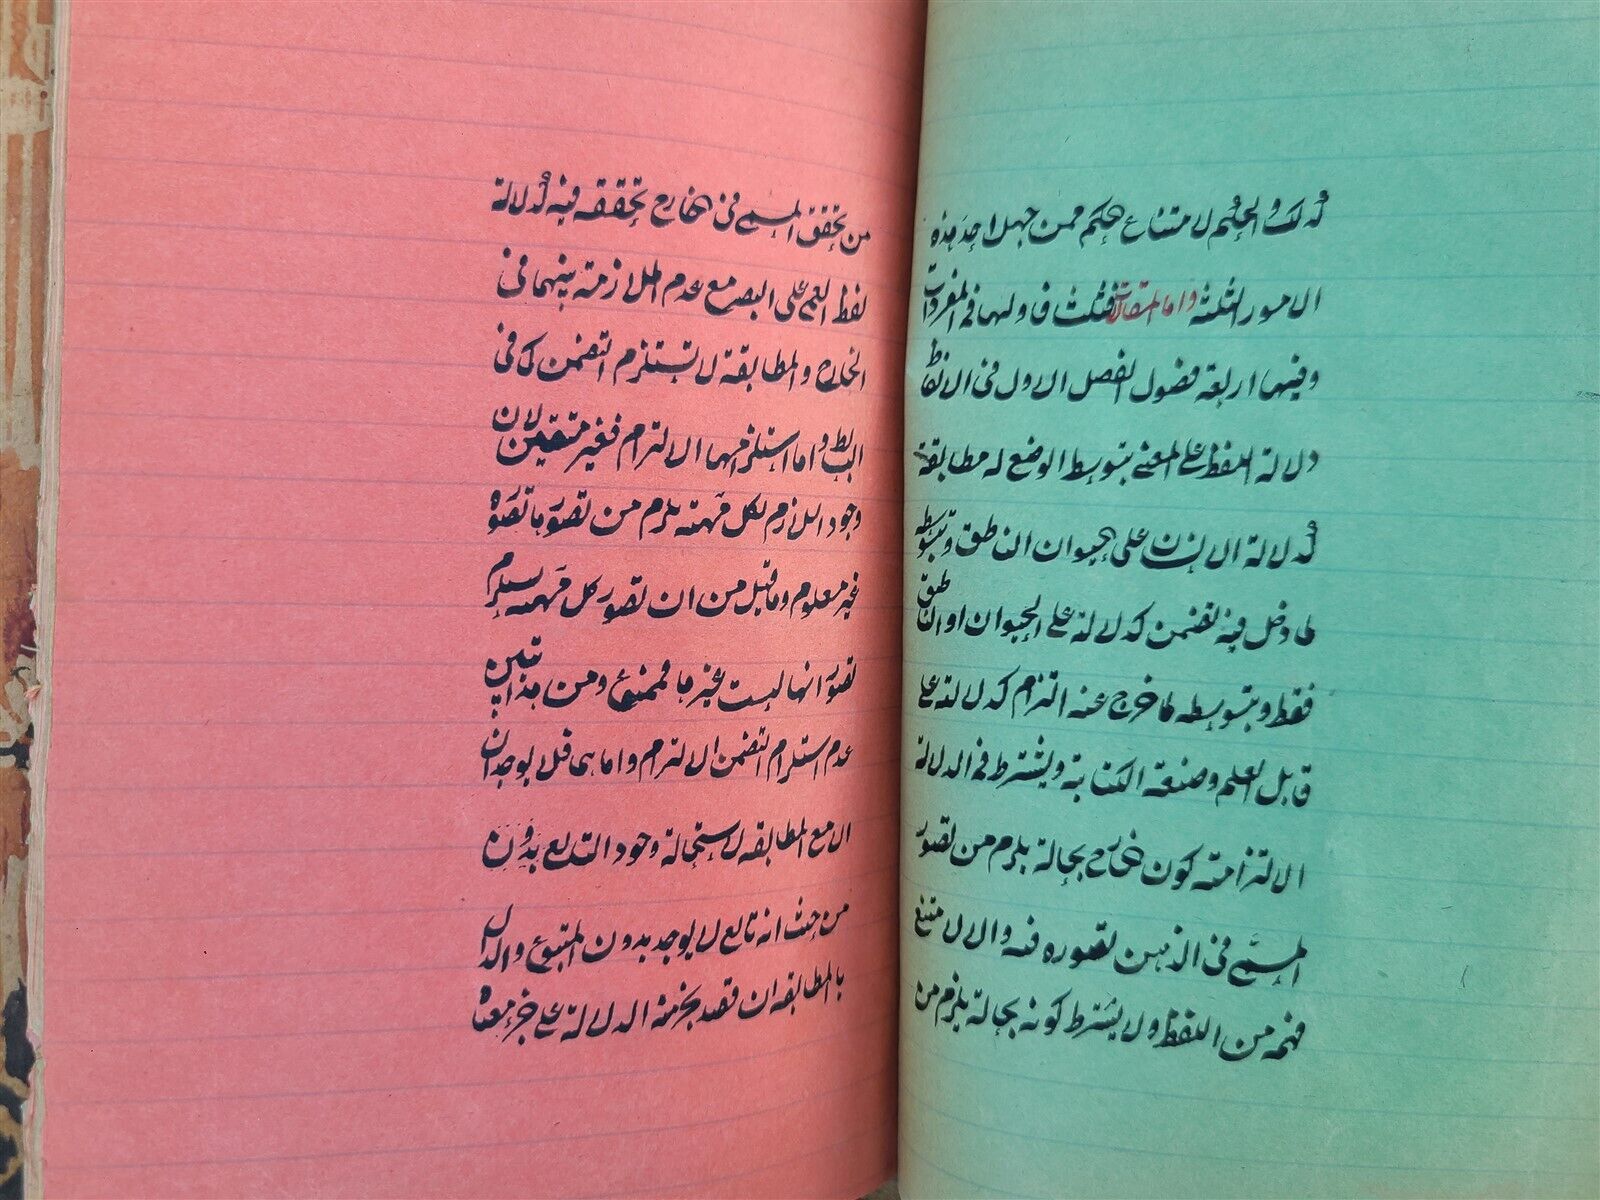 كذلك والحكم لامتناع الحكم ممن جهل احد هذه
الامور الثلثة واما المقالات فثلث فاولها فى المفردات
وفيها اربعة فصول الفصل الاول فى الالفاظ
دلالة اللفظ على المعنى بتوسط الوضع له مطابقة
كدلالة الانسان على الحيوان الناطق وبتوسطه
لما دخل فيه تضمن كدلالته على الحيوان او الناطق
فقط وبتوسطه لما خرج عنه التزام كدلالته على
قابل العلم وصنعة الكتابة ويشترط فى الدلالة
الالتزامية كون الخارجى بحالة يلزم من تصور
المسمى فى الذهن تصوره فيه والا لامتنع
فهمه من اللفظ ولا يشترط كونه بحالة يلزم من
من تحقق المسمى فى الخارج تحققه فيه كدلالة
لفظ العمى على البصر مع عدم الملازمة بينهما فى
الخارج والمطابقة لا تستلزم التضمن كما فى
البسائط واما استلزامها الالتزام فغير متيقن لان
وجود اللازم لكل مهية يلزم من تصورها تصوره
غير معلوم وما قيل من ان تصور كل مهية يستلزم
تصور انها ليست غيرها فممنوع ومن هذا تبين
عدم استلزام التضمن الالتزام واما هما فلا يوجدان
الا مع المطابقة لاستحالة وجود التابع بدون
من حيث انه تابع لا يوجد بدون المتبوع والدال
بالمطابقة ان قصد بجزئه الدلالة على جزء معناه